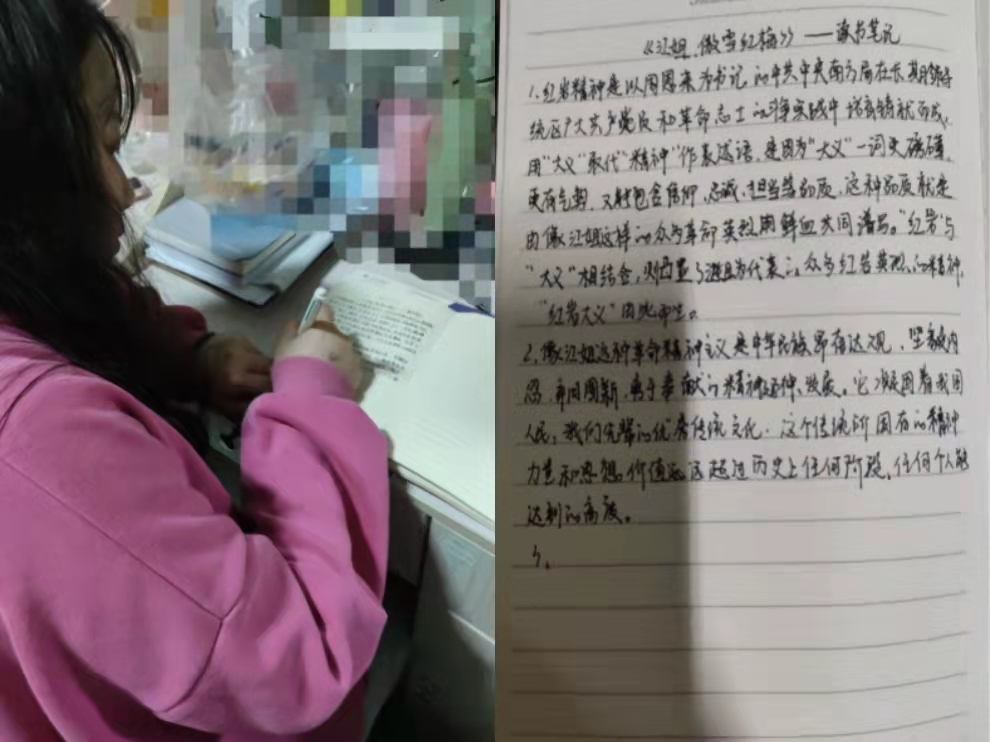 《江姐,傲雪红梅》——读书笔记
1.红岩精神是以周恩来为书记的中共中央南方局在长期领导
统区广大共产党员和革命志士的斗争实践中 铸就而成,
用"大义"取代"精神"作表述语,是因为"大义"一词更磅礴,
更有气势,又能包含信仰、忠诚、担当等品质,这种品质就是
由像江姐这样的众多革命英烈用鲜血共同谱写。"红岩"与
"大义"相结合, 凸显了 为代表的众多红岩英烈的精神,
"红岩大义"因此而生。
2.像江姐这种革命精神 是中华民族 达观、坚毅
忍、 勇于奉献的精神延伸、发展。它凝固着我国
人民,我们先辈的优秀传统文化.这个传统所固有的精神
力量和思想价值远远超过历史上任何阶段,任何个人能
达到的高度。
3.